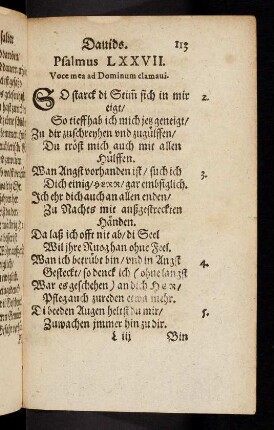 Davids. 113
Psalmus LXXVII.
Voce mea ad Dominum clamaui.
SO starck di Stim̃ sich in mir 2.
eigt/
So tieff hab ich mich jetz geneigt/
Zu dir zuschreyhen vnd zugülffen/
Du tröst mich auch mit allen
Hülffen.
Wan Angst vorhanden ist/ such ich 3.
Dich einig/ HERR/ gar embsiglich.
Ich ehr dich auch an allen enden/
Zu Nachts mit außgestreckten
Händen.
Da laß ich offt nit ab/ di Seel
Wil jhre Ruog han ohne Feel.
Wan ich betrübt bin/ vnd in Angst 4.
Gesteckt/ so denck ich (ohne langst
War es geschehen) an dich HER/
Pfleg auch zureden etwa mehr.
Di beeden Augen heltst du mir/ 5.
Zuwachen jmmer hin zu dir.
L iij Bin